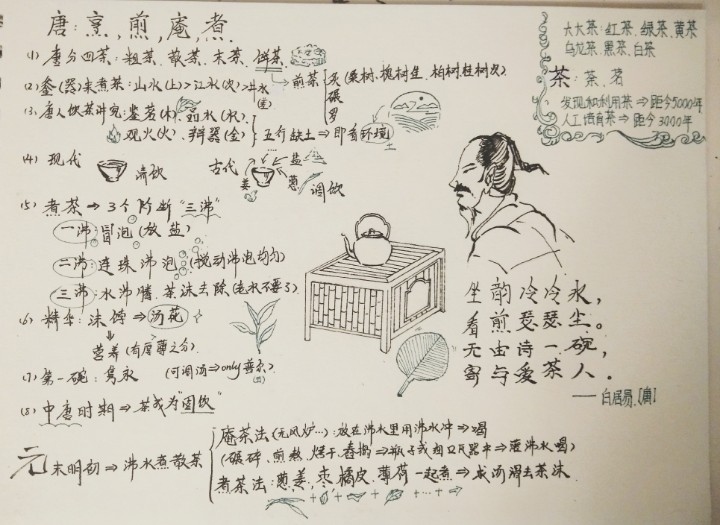 唐:烹,煎,庵,煮
(1) 唐分四茶:粗茶、散茶、末茶、饼茶
(2) 釜(器)来煮茶:山水(上)>江水(次)>井水(差)
煎茶 炙(桑树、槐树、桐树枝次)
碾
罗
(3) 唐人饮茶讲究:鉴茗(木)、品水(水)、
观火(火)、辨器(金)
五行缺土⇒即看环境
土
(4) 现代 清饮 古代 盐 姜 葱 调饮
(5) 煮茶⇒3个阶段"三沸"
一沸:冒泡(放盐)
二沸:连珠沸泡(搅动沸泡均匀)
三沸:水沸腾、茶沫去除(老水不要了)
(6) 精华:沫饽⇒汤花
营养(有厚薄之分)
(7) 第一碗:隽永 (可润汤⇒only首尔)
(8) 中唐时期⇒茶成为"国饮"
元末明初⇒沸水煮散茶
庵茶法(无风炉…):放在沸水里用沸水冲⇒喝
(碾碎、煎熬、烤干、舂捣⇒瓶子或细口瓦器中⇒灌沸水喝)
煮茶法:葱、姜、枣、橘皮、薄荷一起煮⇒成汤滑去茶沫
+ + + + …+ ⇒
六大茶:红茶、绿茶、黄茶
乌龙茶、黑茶、白茶
茶:荼、茗
发现和利用茶⇒距今5000年
人工培育茶⇒距今3000年
坐韵冷冷水,
看煎瑟瑟尘。
无由诗一碗,
寄与爱茶人.
——白居易.[唐]